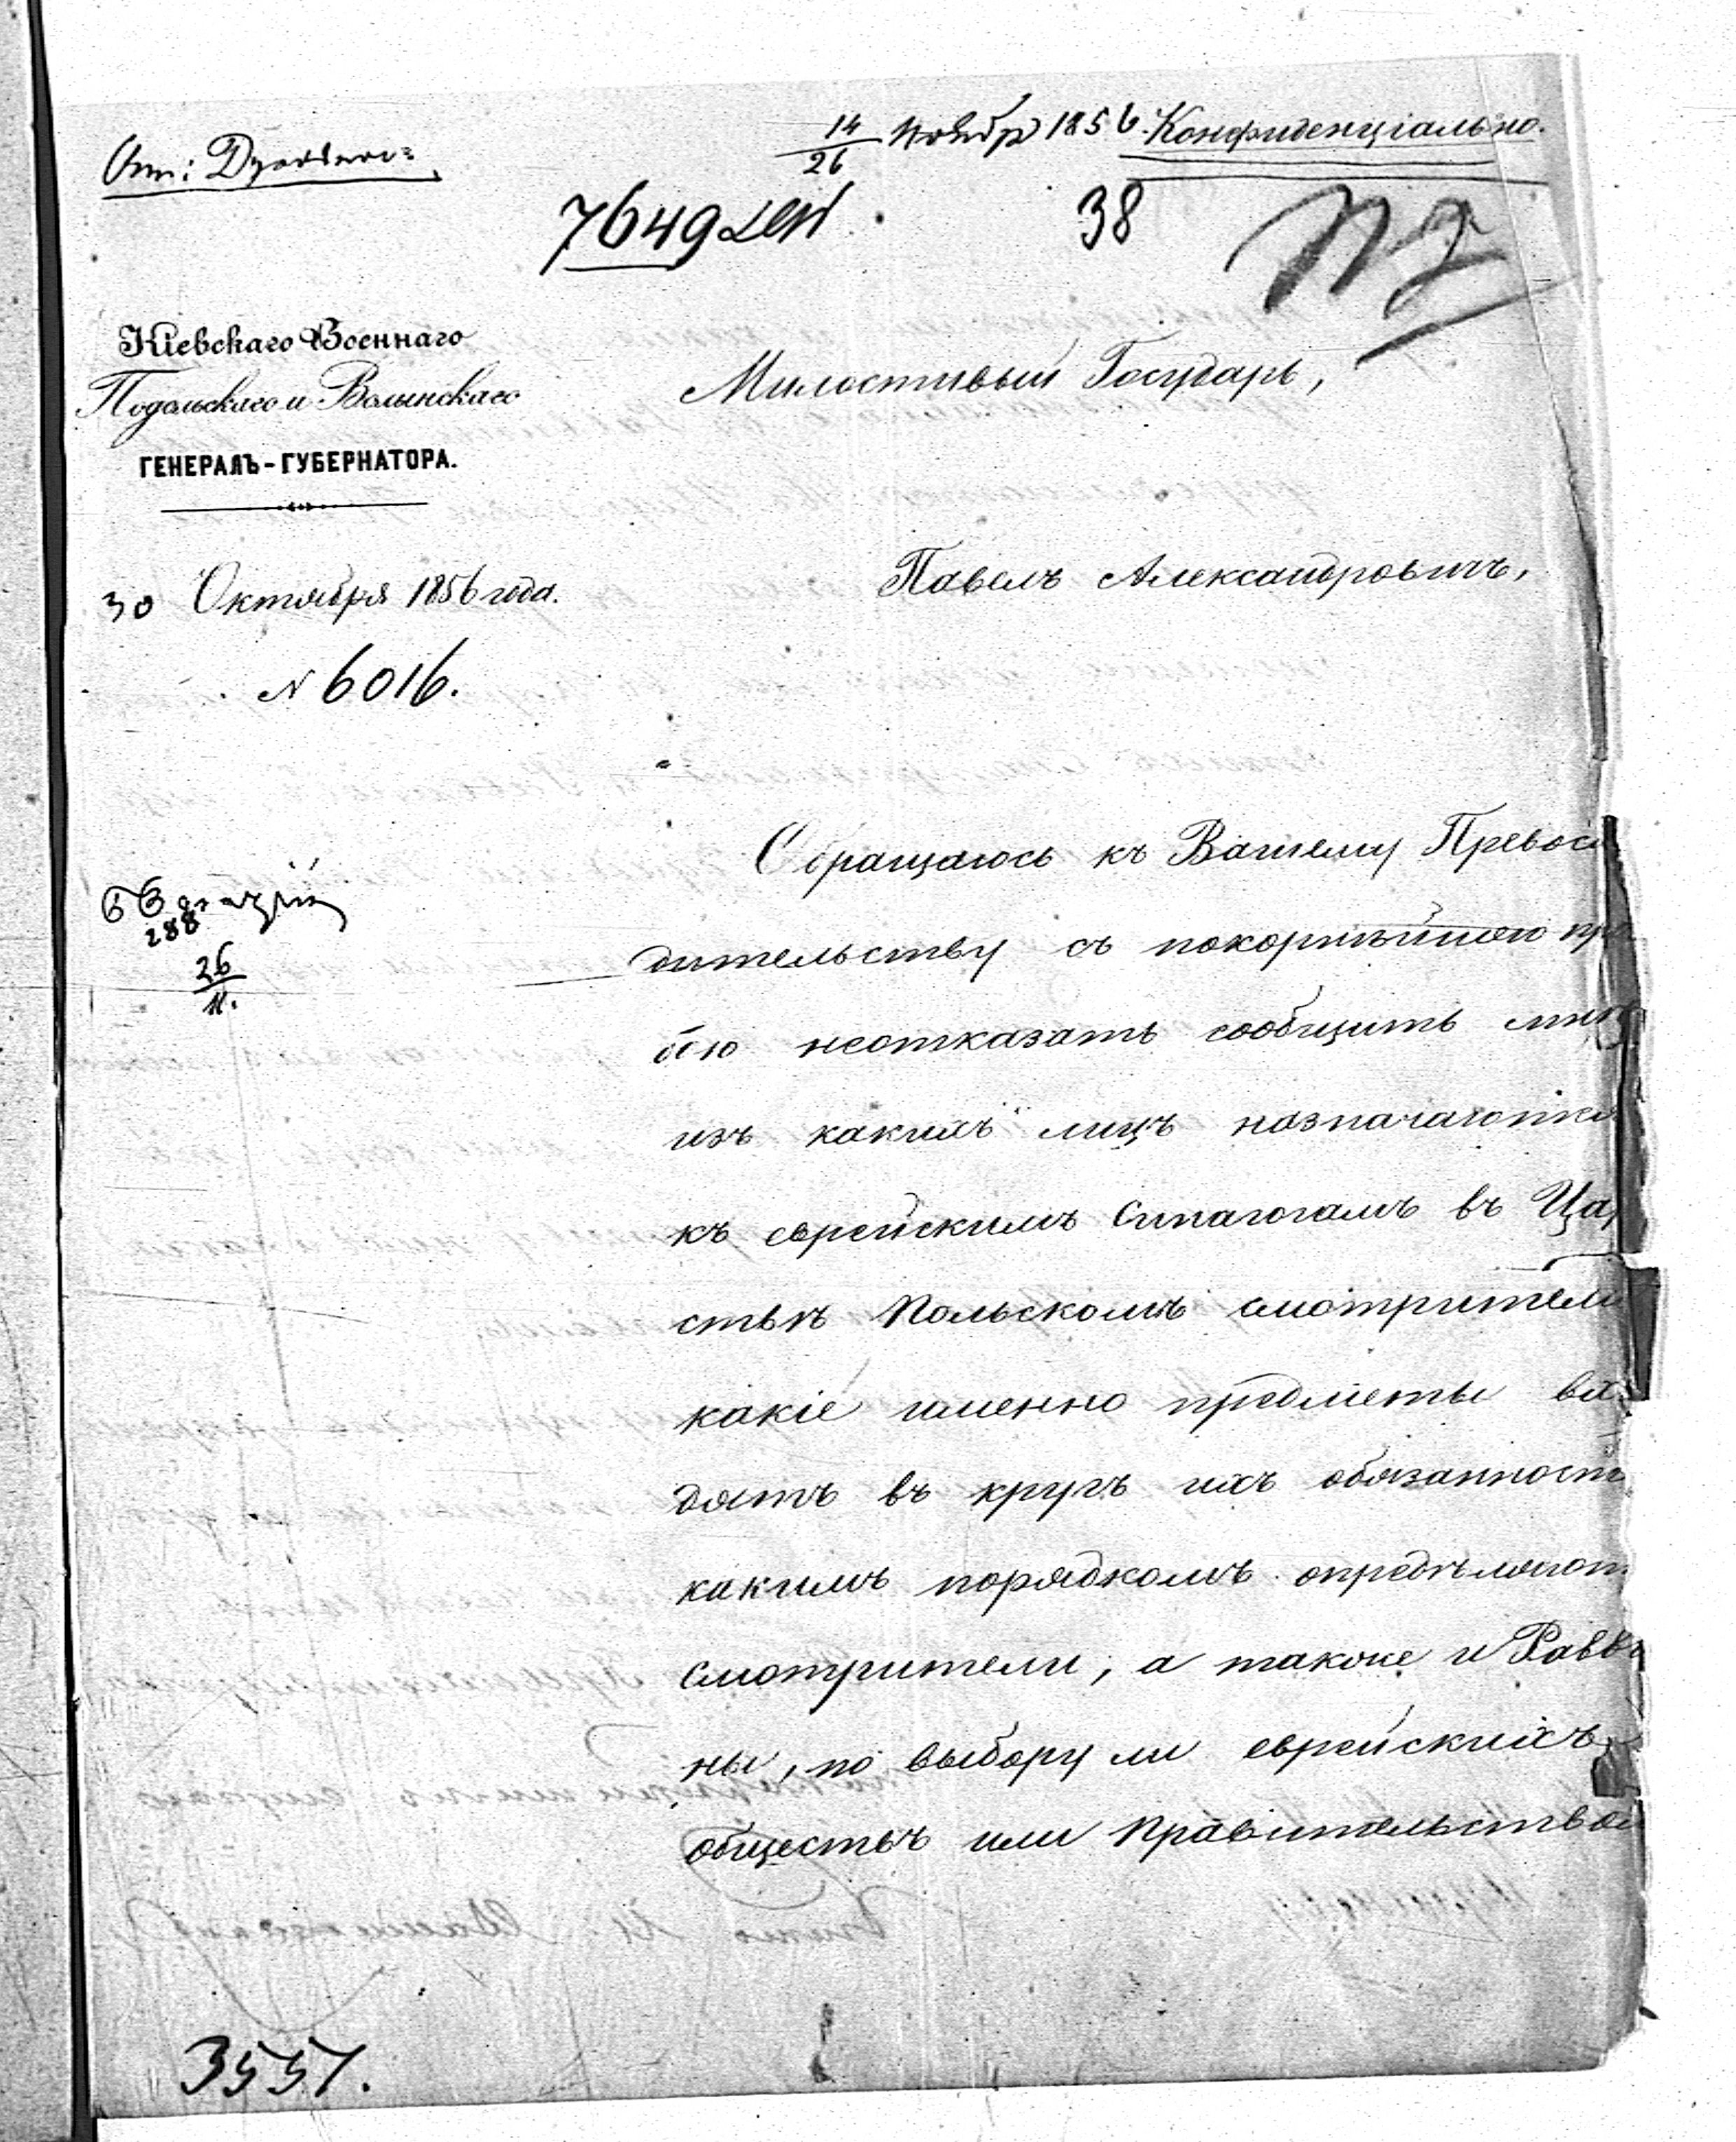 14/26 Ноябр 1856. Конфиденціально.
От:
7649
38
Кіевскаго Военнаго
Подольскаго и Волынскаго
ГЕНЕРАЛЪ-ГУБЕРНАТОРА.
30 Октября 1856 года.
N 6016.
Милостивый Государь,
Павелъ Александровичъ,
288
26/11.
Обращаюсь къ Вашему Превосхо
дительству съ покорнѣйшею про
бою неотказать сообщить мнѣ
изъ какихъ лицъ назначаются
къ еврейскимъ Синагогамъ въ Цар
ствѣ Польскомъ смотрители
какіе именно предметы вхо
дятъ въ кругъ ихъ обязанност
какимъ порядкомъ опредѣляют
смотрители, а также и Равви
ны, по выбору ли еврейскихъ
обществъ или Правительством
3551.